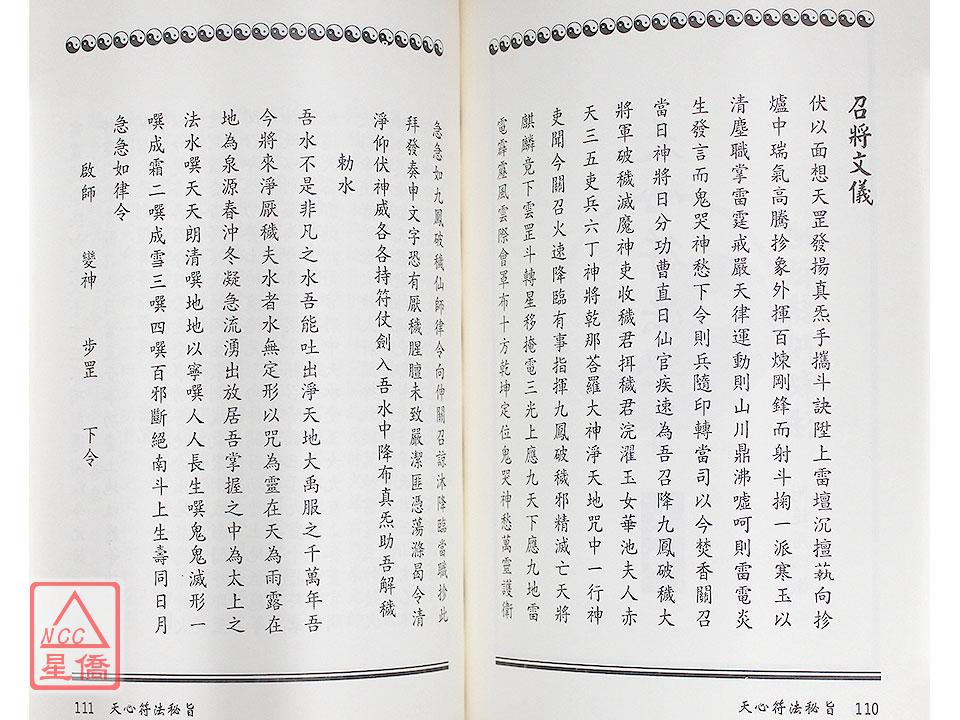 召將文儀
伏以面想天罡發揚真炁手攜斗訣陞上雷壇沉擅爇向抮
爐中瑞氣高騰抮象外揮百煉剛鋒而射斗掬一派寒玉以
清塵職掌雷霆戒嚴天律運動則山川鼎沸噓呵則雷電炎
生發言而鬼哭神愁下令則兵隨印轉當司以今焚香關召
當日神將日分功曹直日仙官疾速為吾召降九鳳破穢大
將軍破穢滅魔神吏收穢君挕穢君浣濯玉女華池夫人赤
天三五吏兵六丁神將乾那荅羅大神淨天地咒中一行神
吏聞今關召火速降臨有事指揮九鳳破穢邪精滅亡天將
麒麟竟下雲罡斗轉星移掩電三光上應九天下應九地雷
電霹靂風雲際會罩布十方乾坤定位鬼哭神愁萬靈護衛
110 天心符法秘旨
急急如九鳳破穢仙師律令向伸關召諒沐降臨當職抮此
拜發奏申文字恐有厭穢腥膻未致嚴潔匪憑蕩滌曷令清
淨仰伏神威各各持符仗劍入吾水中降布真炁助吾解穢
勅水
吾水不是非凡之水吾能吐出淨天地大禹服之千萬年吾
今將來淨厭穢夫水者水無定形以咒為靈在天為雨露在
地為泉源春沖冬凝急流湧出放居吾掌握之中為太上之
法水噀天天朗清噀地地以寧噀人人長生噀鬼鬼滅形一
噀成霜二噀成雪三噀四噀百邪斷絕南斗上生壽同日月
急急如律令
啟師 變神 步罡 下令
111 天心符法秘旨
NCC
星僑